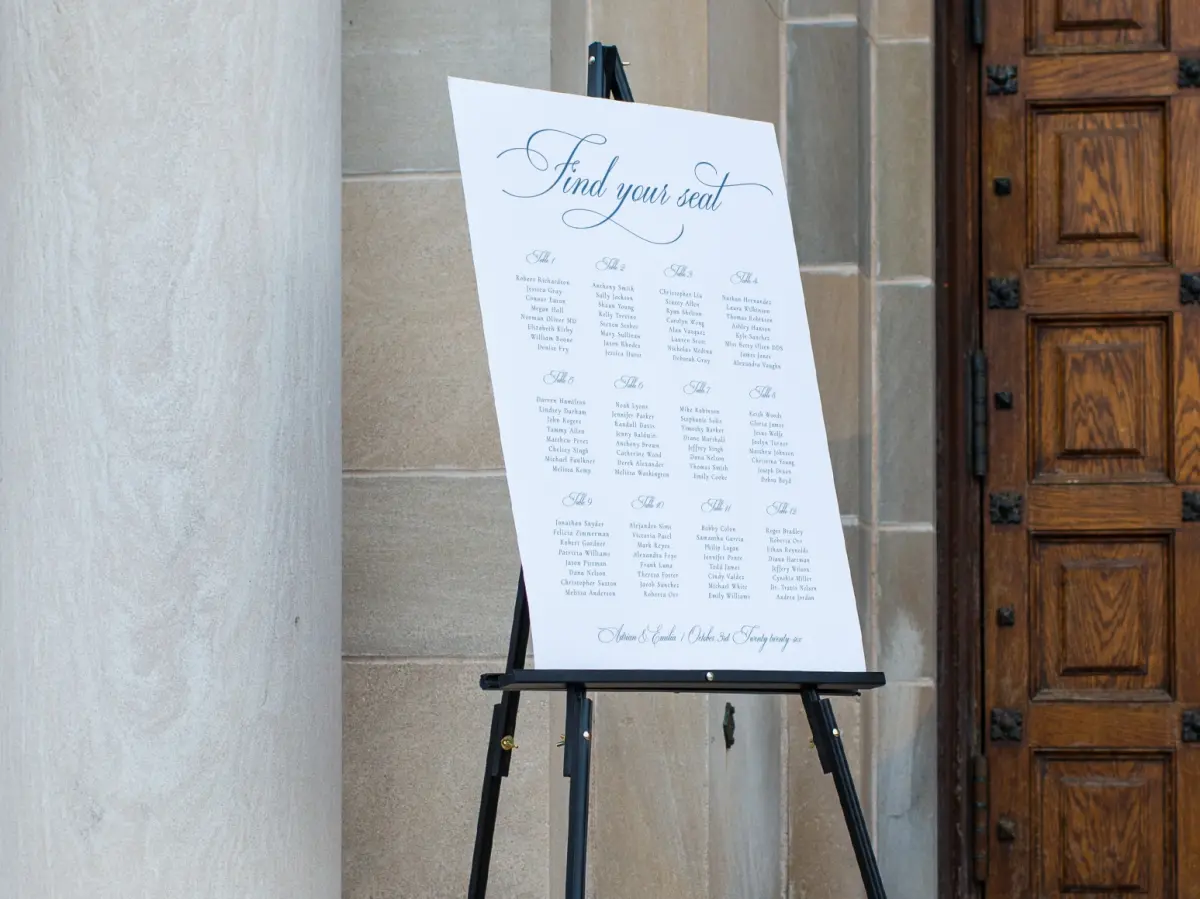 Find your seat
Table 1
Robert Richardson
Jessica Gray
Connor Eaton
Megan Hall
Norman Oliver MD
Elizabeth Kirby
William Boone
Denise Fry
Table 2
Anthony Smith
Sally Jackson
Shaun Young
Kelly
Mary Sullivan
Jason Rhodes
Jessica Davis
Table 3
Christopher Liu
Stacey Allen
Ryan
Carolyn Wong
Alan Vasquez
Lauren Scott
Nicholas Medina
Deborah Gray
Table 4
Nathan Hernandez
Laura Wilkinson
Thomas Robinson
Ashley Hansen
Kyle Sanchez
Miss Kerry Olsen DDS
James Jones
Alexandra Vaughn
Table 5
Darren Hamilton
Lindsey Durham
John Rogers
Tammy Allen
Matthew Perez
Chelsey Singh
Michael Faulkner
Melissa Kemp
Table 6
Noah Lyons
Jennifer Parker
Randall Davis
Jenny Baldwin
Anthony Brown
Catherine Wood
Derek Alexander
Melissa Washington
Table 7
Mike Robinson
Stephanie Soto
Timothy Barber
Diane Marshall
Jeffrey Singh
Dana Nelson
Thomas Smith
Emily Cooke
Table 8
Keith Woods
Gloria James
Jesse Wolfe
Joslyn Turner
Matthew Johnson
Christina Young
Joseph Dixon
Debra Boyd
Table 9
Jonathan Snyder
Felicia Zimmerman
Robert Gardner
Patricia Williams
Jason Pittman
Dana Nelson
Christopher Sutton
Melissa Anderson
Table 10
Alejandra Sims
Victoria Patel
Mark Reyes
Alexandra Frye
Frank Luna
Theresa Foster
Jacob Sanchez
Roberta Orr
Table 11
Bobby Colon
Samantha Garcia
Philip Logan
Jennifer Pease
Todd James
Cindy Valdez
Michael White
Emily Williams
Table 12
Roger Bradley
Roberta Orr
Ethan Reynolds
Diana Hartman
Jeffery Wilson
Cynthia Miller
Dr. Travis Nelson
Andrea Jordan
Adrian & Emilia | October 3rd Twenty twenty-six